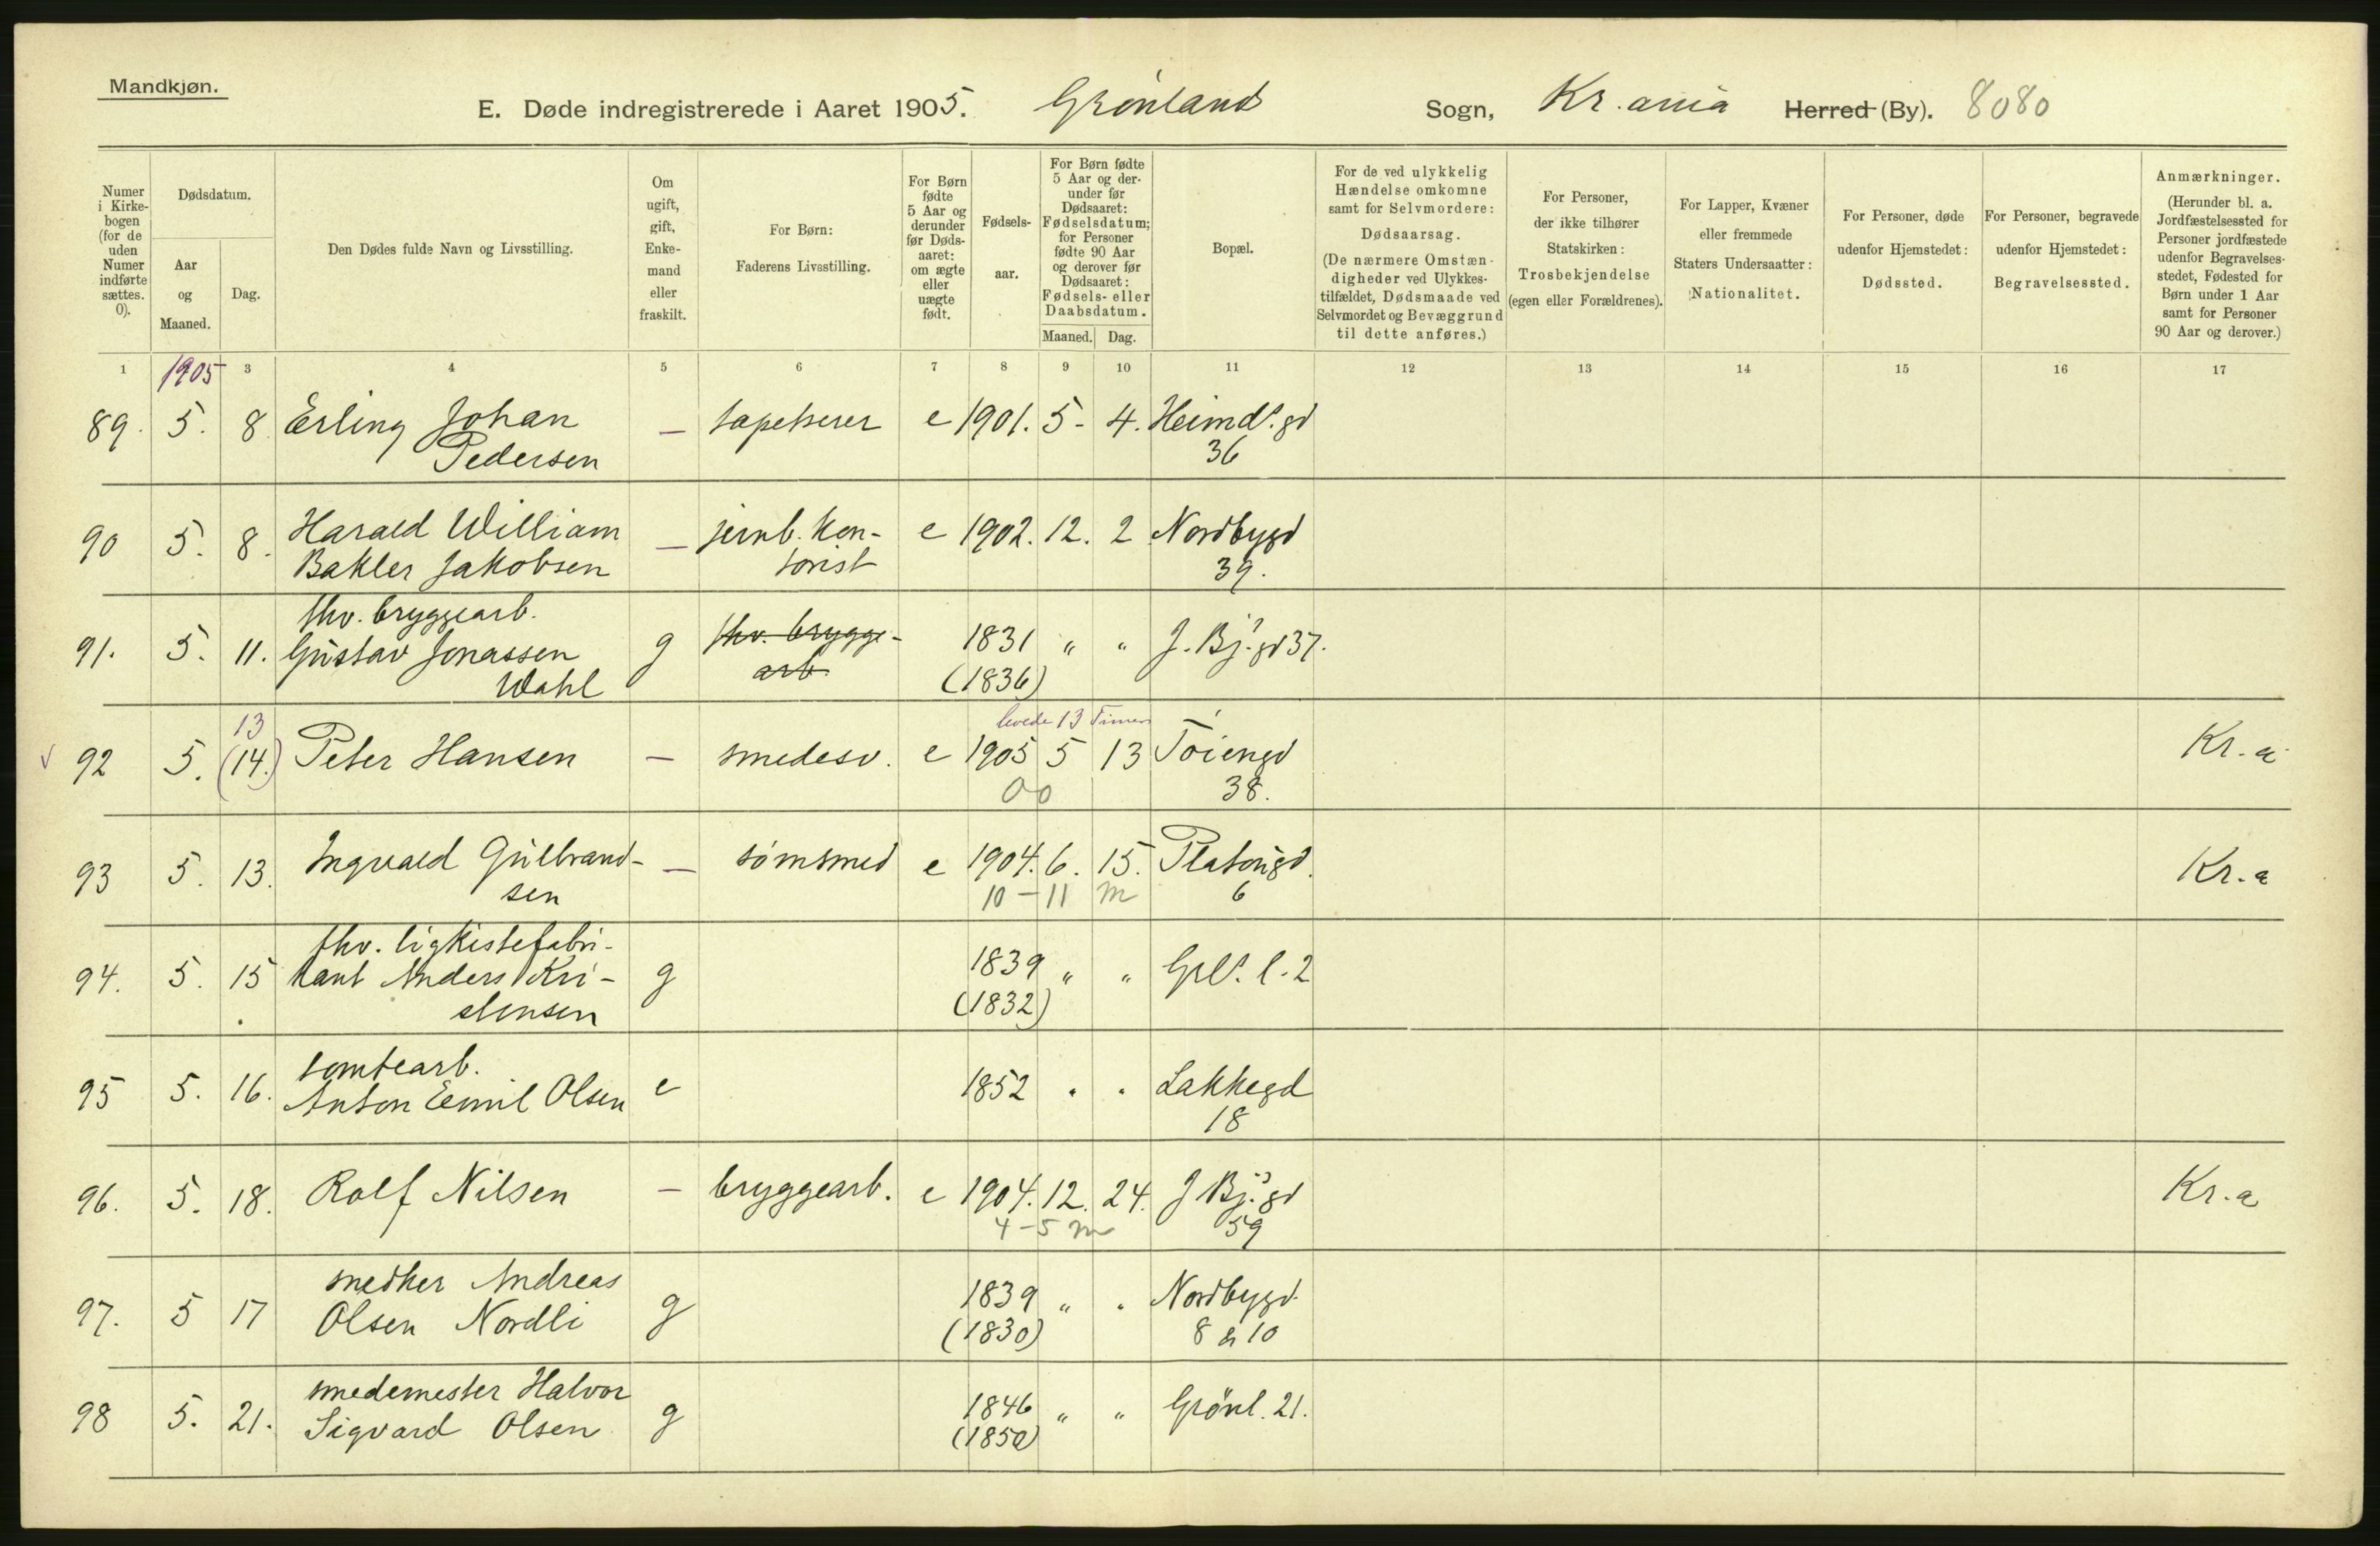 Mandkjøn.
E. Døde indregistrerede i Aaret 1905. Grønland Sogn, Kr.ania Herred (By). 8080
Numer i Kirkebogen (for de uden Numer indførte sættes. 0).
Dødsdatum.
Aar og Maaned.
Dag.
Den Dødes fulde Navn og Livsstilling.
Om ugift, gift, Enkemand eller fraskilt.
For Børn: Faderens Livsstilling.
For Børn fødte 5 Aar og derunder før Dødsaaret: om ægte eller uægte født.
Fødselsaar.
For Børn fødte 5 Aar og derunder før Dødsaaret: Fødselsdatum; for Personer fødte 90 Aar og derover før Dødsaaret: Fødsels- eller Daabsdatum.
Maaned. Dag.
Bopæl.
For de ved ulykkelig Hændelse omkomne samt for Selvmordere: Dødsaarsag. (De nærmere Omstændigheder ved Ulykkestilfældet, Dødsmaade ved Selvmordet og Bevæggrund til dette anføres.)
For Personer, der ikke tilhører Statskirken: Trosbekjendelse (egen eller Forældrenes).
For Lapper, Kvæner eller fremmede Staters Undersaatter: Nationalitet.
For Personer, døde udenfor Hjemstedet: Dødssted.
For Personer, begravede udenfor Hjemstedet: Begravelsessted.
Anmærkninger. (Herunder bl. a. Jordfæstelsessted for Personer jordfæstede udenfor Begravelsesstedet, Fødested for Børn under 1 Aar samt for Personer 90 Aar og derover.)
1 1905 3 4 5 6 7 8 9 10 11 12 13 14 15 16 17
89. 5. 8. Erling Johan — tapetserer e 1901. 5- 4. Heimds.gd
Pedersen 36
90 5. 8. Harald William — jernb. kon- e 1902. 12. 2 Nordbygd
Bakler Jakobsen torist 39.
fhv. bryggearb.
91. 5. 11. Gustav Jonassen g fhv. brygge- 1831 " " J. Bj.s gd 37.
Wahl arb. (1836)
13 levede 13 Timer
92 5. (14.) Peter Hansen — smedesv. e 1905 5 13 Tøiengd Kr.a
00 38.
93 5. 13. Ingvald Gulbrand- — sømsmed e 1904. 6. 15. Platougd. Kr.a
sen 10-11 m 6
fhv. ligkistefabri-
94. 5. 15 kant Anders Kri- g 1839 " " Grls. l. 2
stensen (1832)
tomtearb.
95 5. 16. Anton Eemil Olsen e 1852 " " Lakkegd
18
96. 5. 18. Rolf Nilsen — bryggearb. e 1904. 12. 24. J Bj.s gd Kr.a
4-5 m 59
snedker Andreas
97. 5 17 Olsen Nordli g 1839 " " Nordbygd.
(1830) 8 & 10
smedemester Halvor
98 5. 21. Sigvard Olsen g 1846 " " Grönl. 21.
(1850)